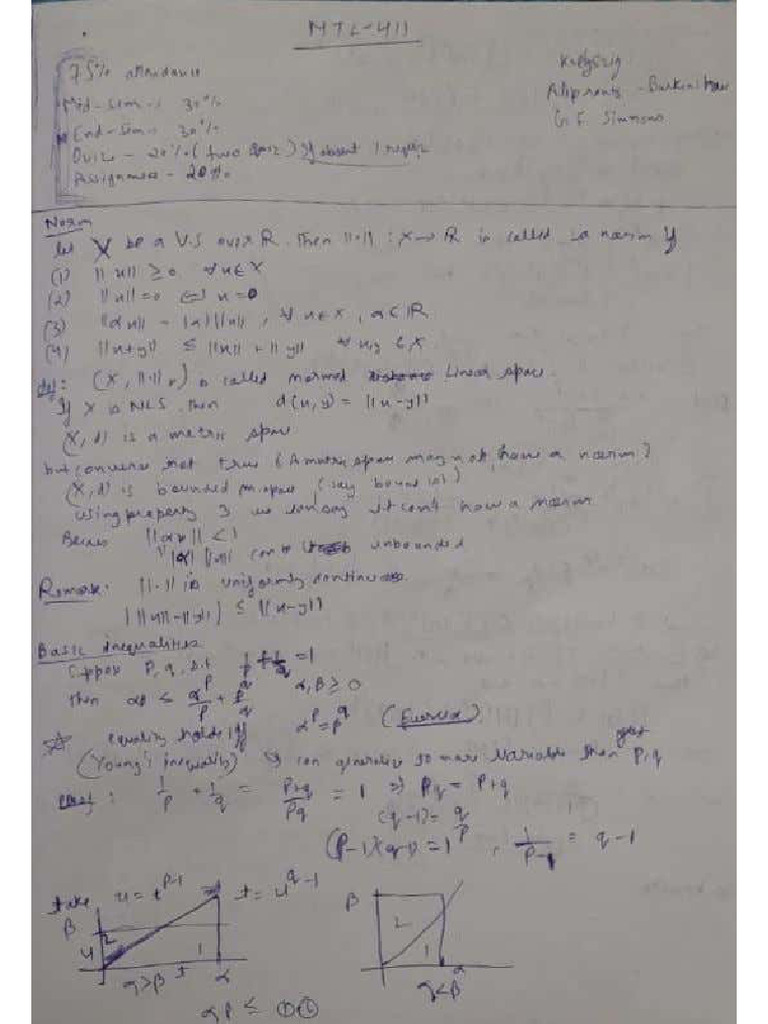 MTL-411
75% attendance
Mid-Sem - 30%
End-Sem - 30%
Quiz - 20% (two Quiz) If absent 1
Assignment - 20%
Kreyszig
Aliprantis - Burkinshaw
G.F. Simmons
Norm
let X be a V.S over R. Then ||·|| : X → R is called a norm if
(1) ||x|| ≥ 0 ∀ x ∈ X
(2) ||x|| = 0 ⟺ x = 0
(3) ||αx|| = |α| ||x||, ∀ x ∈ X, α ∈ R
(4) ||x+y|| ≤ ||x|| + ||y|| ∀ x,y ∈ X
def: (X, ||·||) is called normed Linear space.
If X is NLS then d(x,y) = ||x-y||
(X, d) is a metric space
but converse not true (A metric space may not have a norm)
(X,d) is bounded m.space (say bound is 1)
using property 3 we can say it can't have a norm
||αx|| < 1
|α| ||x|| can be unbounded
Remark: ||·|| is uniformly continuous.
| ||x|| - ||y|| | ≤ ||x-y||
Basic inequalities
Suppose P, q, s.t 1/p + 1/q = 1
then αβ ≤ α^p/p + β^q/q α,β ≥ 0
equality holds iff α^p = β^q (Exercise)
(Young's inequality) can generalize to more variable then p,q
proof: 1/p + 1/q = (p+q)/pq = 1 ⇒ pq = p+q
(q-1) = q/p
(p-1)(q-1) = 1, 1/(p-1) = q-1
take u = t^(p-1) t = u^(q-1)
β
u
2
1
t
α
α>β
β
2
1
α
α<β
αβ ≤ ① ②